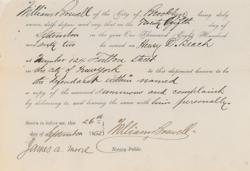 William Powell of the City of Brooklyn being duly
sworn, doth depose and say, that on the Twenty Eighth day of
September in the year One Thousand Eight Hundred
and Sixty two he served on Henry D. Beach
at Number 120 Fulton Street
in the city of New York to this deponent known to be
the defendant within named
a copy of the annexed Summons and complaint
by delivering to, and leaving the same with him personally.
Sworn to before me, this 26th
day of September 1862 William Powell
James A.
Notary Public.